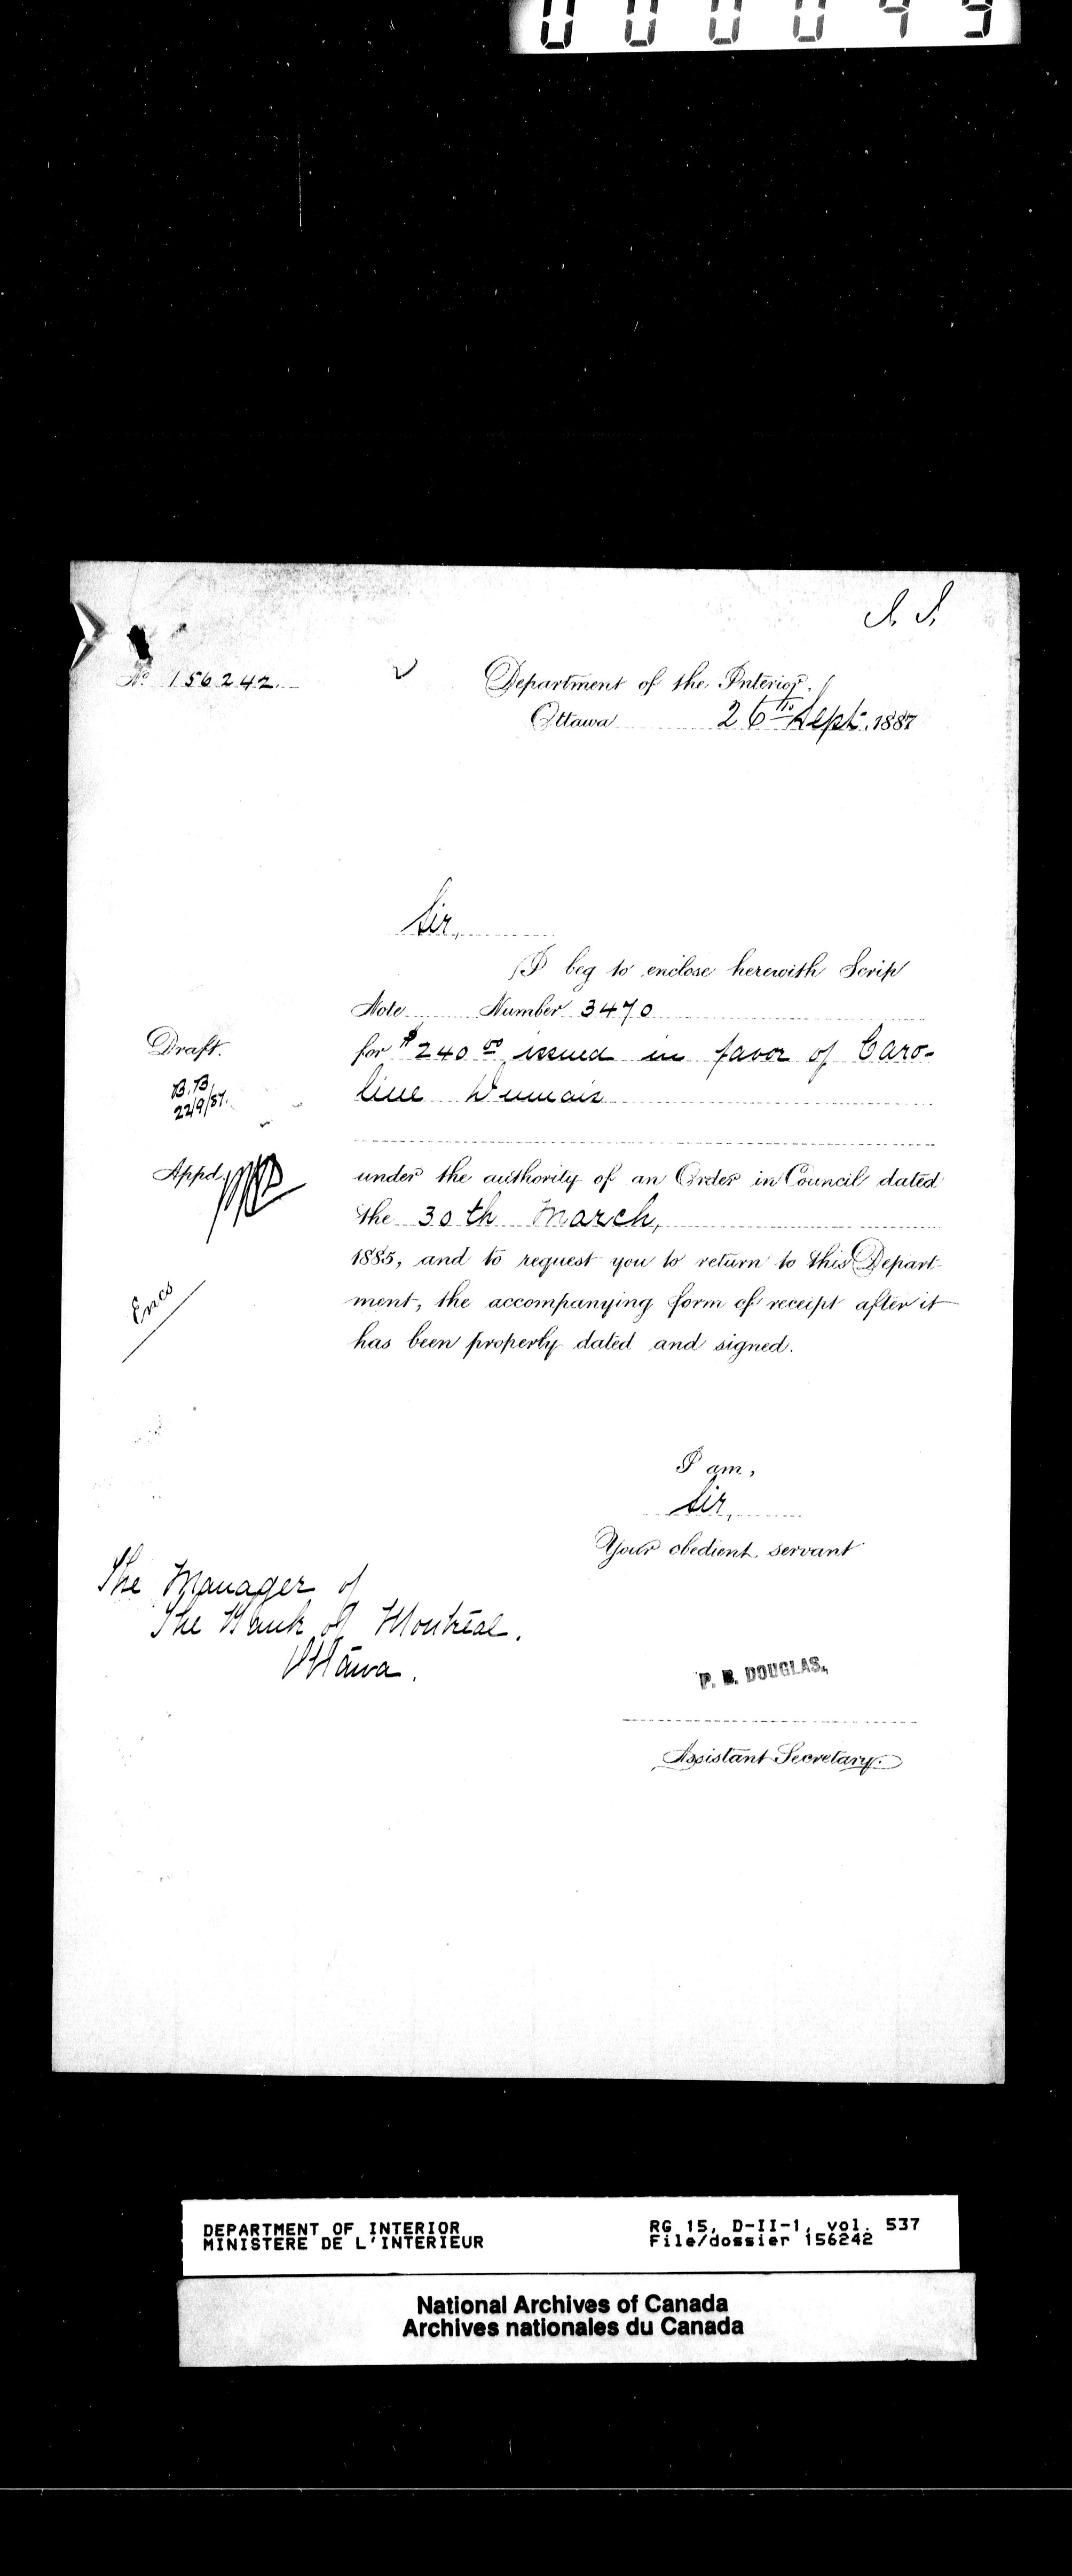 000049
Nº 156242.
Department of the Interior.
Ottawa 26th Sept. 1887
Sir,
I beg to enclose herewith Scrip
Note Number 3470
Draft.
for $240 00 issued in favor of Caro-
B.B.
22/9/87.
line Dumais
Appd
under the authority of an Order in Council dated
the 30th March,
1885, and to request you to return to this Depart-
Encs
ment, the accompanying form of receipt after it
has been properly dated and signed.
I am,
Sir,
Your obedient servant
The Manager of
The Bank of Montreal.
Ottawa.
P. B. DOUGLAS,
Assistant Secretary.
DEPARTMENT OF INTERIOR
MINISTERE DE L'INTERIEUR
RG 15, D-II-1, vol. 537
File/dossier 156242
National Archives of Canada
Archives nationales du Canada